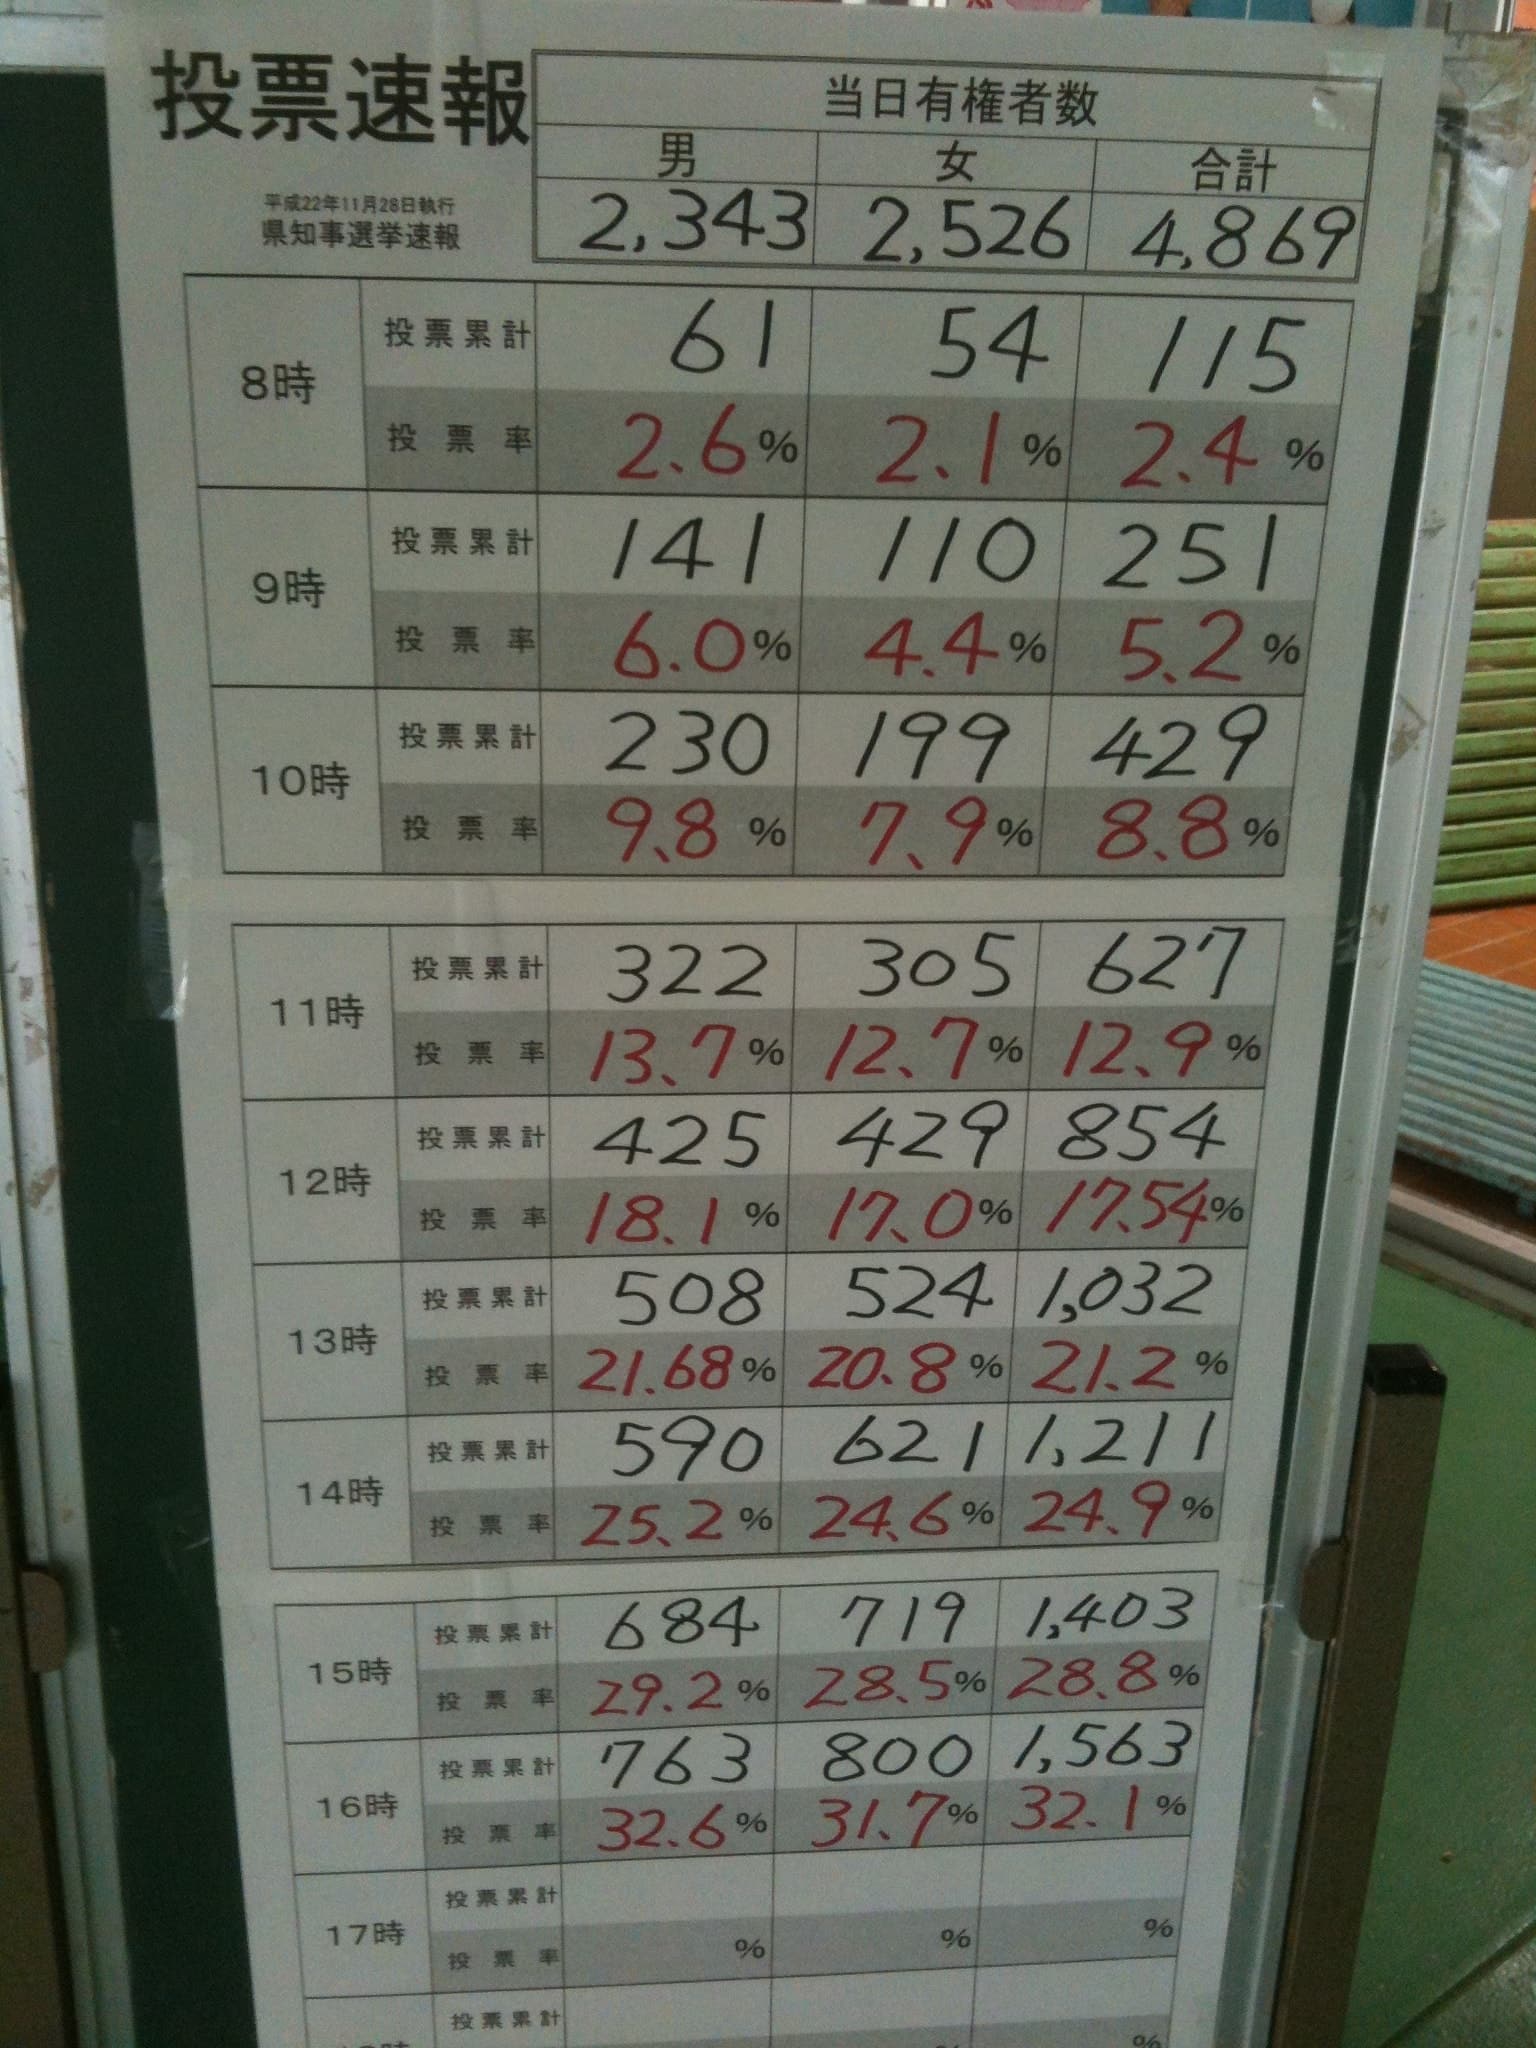 投票速報
平成22年11月28日執行
県知事選挙速報
当日有権者数
男 女 合計
2,343 2,526 4,869
8時
投票累計 61 54 115
投票率 2.6% 2.1% 2.4%
9時
投票累計 141 110 251
投票率 6.0% 4.4% 5.2%
10時
投票累計 230 199 429
投票率 9.8% 7.9% 8.8%
11時
投票累計 322 305 627
投票率 13.7% 12.7% 12.9%
12時
投票累計 425 429 854
投票率 18.1% 17.0% 17.54%
13時
投票累計 508 524 1,032
投票率 21.68% 20.8% 21.2%
14時
投票累計 590 621 1,211
投票率 25.2% 24.6% 24.9%
15時
投票累計 684 719 1,403
投票率 29.2% 28.5% 28.8%
16時
投票累計 763 800 1,563
投票率 32.6% 31.7% 32.1%
17時
投票累計
投票率 % % %
投票累計
%